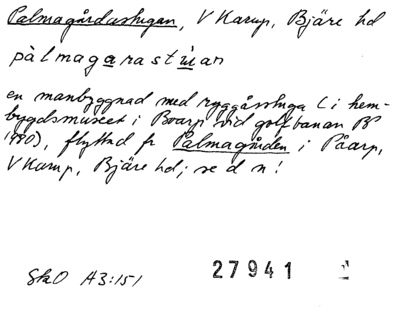 Palmagårdastugan, V Karup, Bjäre hd
pàlmagarastúan
en manbyggnad med ryggåsstuga (i hem-
bygdsmuseet i Boarp vid golfbanan
1990), flyttad fr Palmagården i Påarp,
V Karup, Bjäre hd; se d n!
SkO A3:151
27941